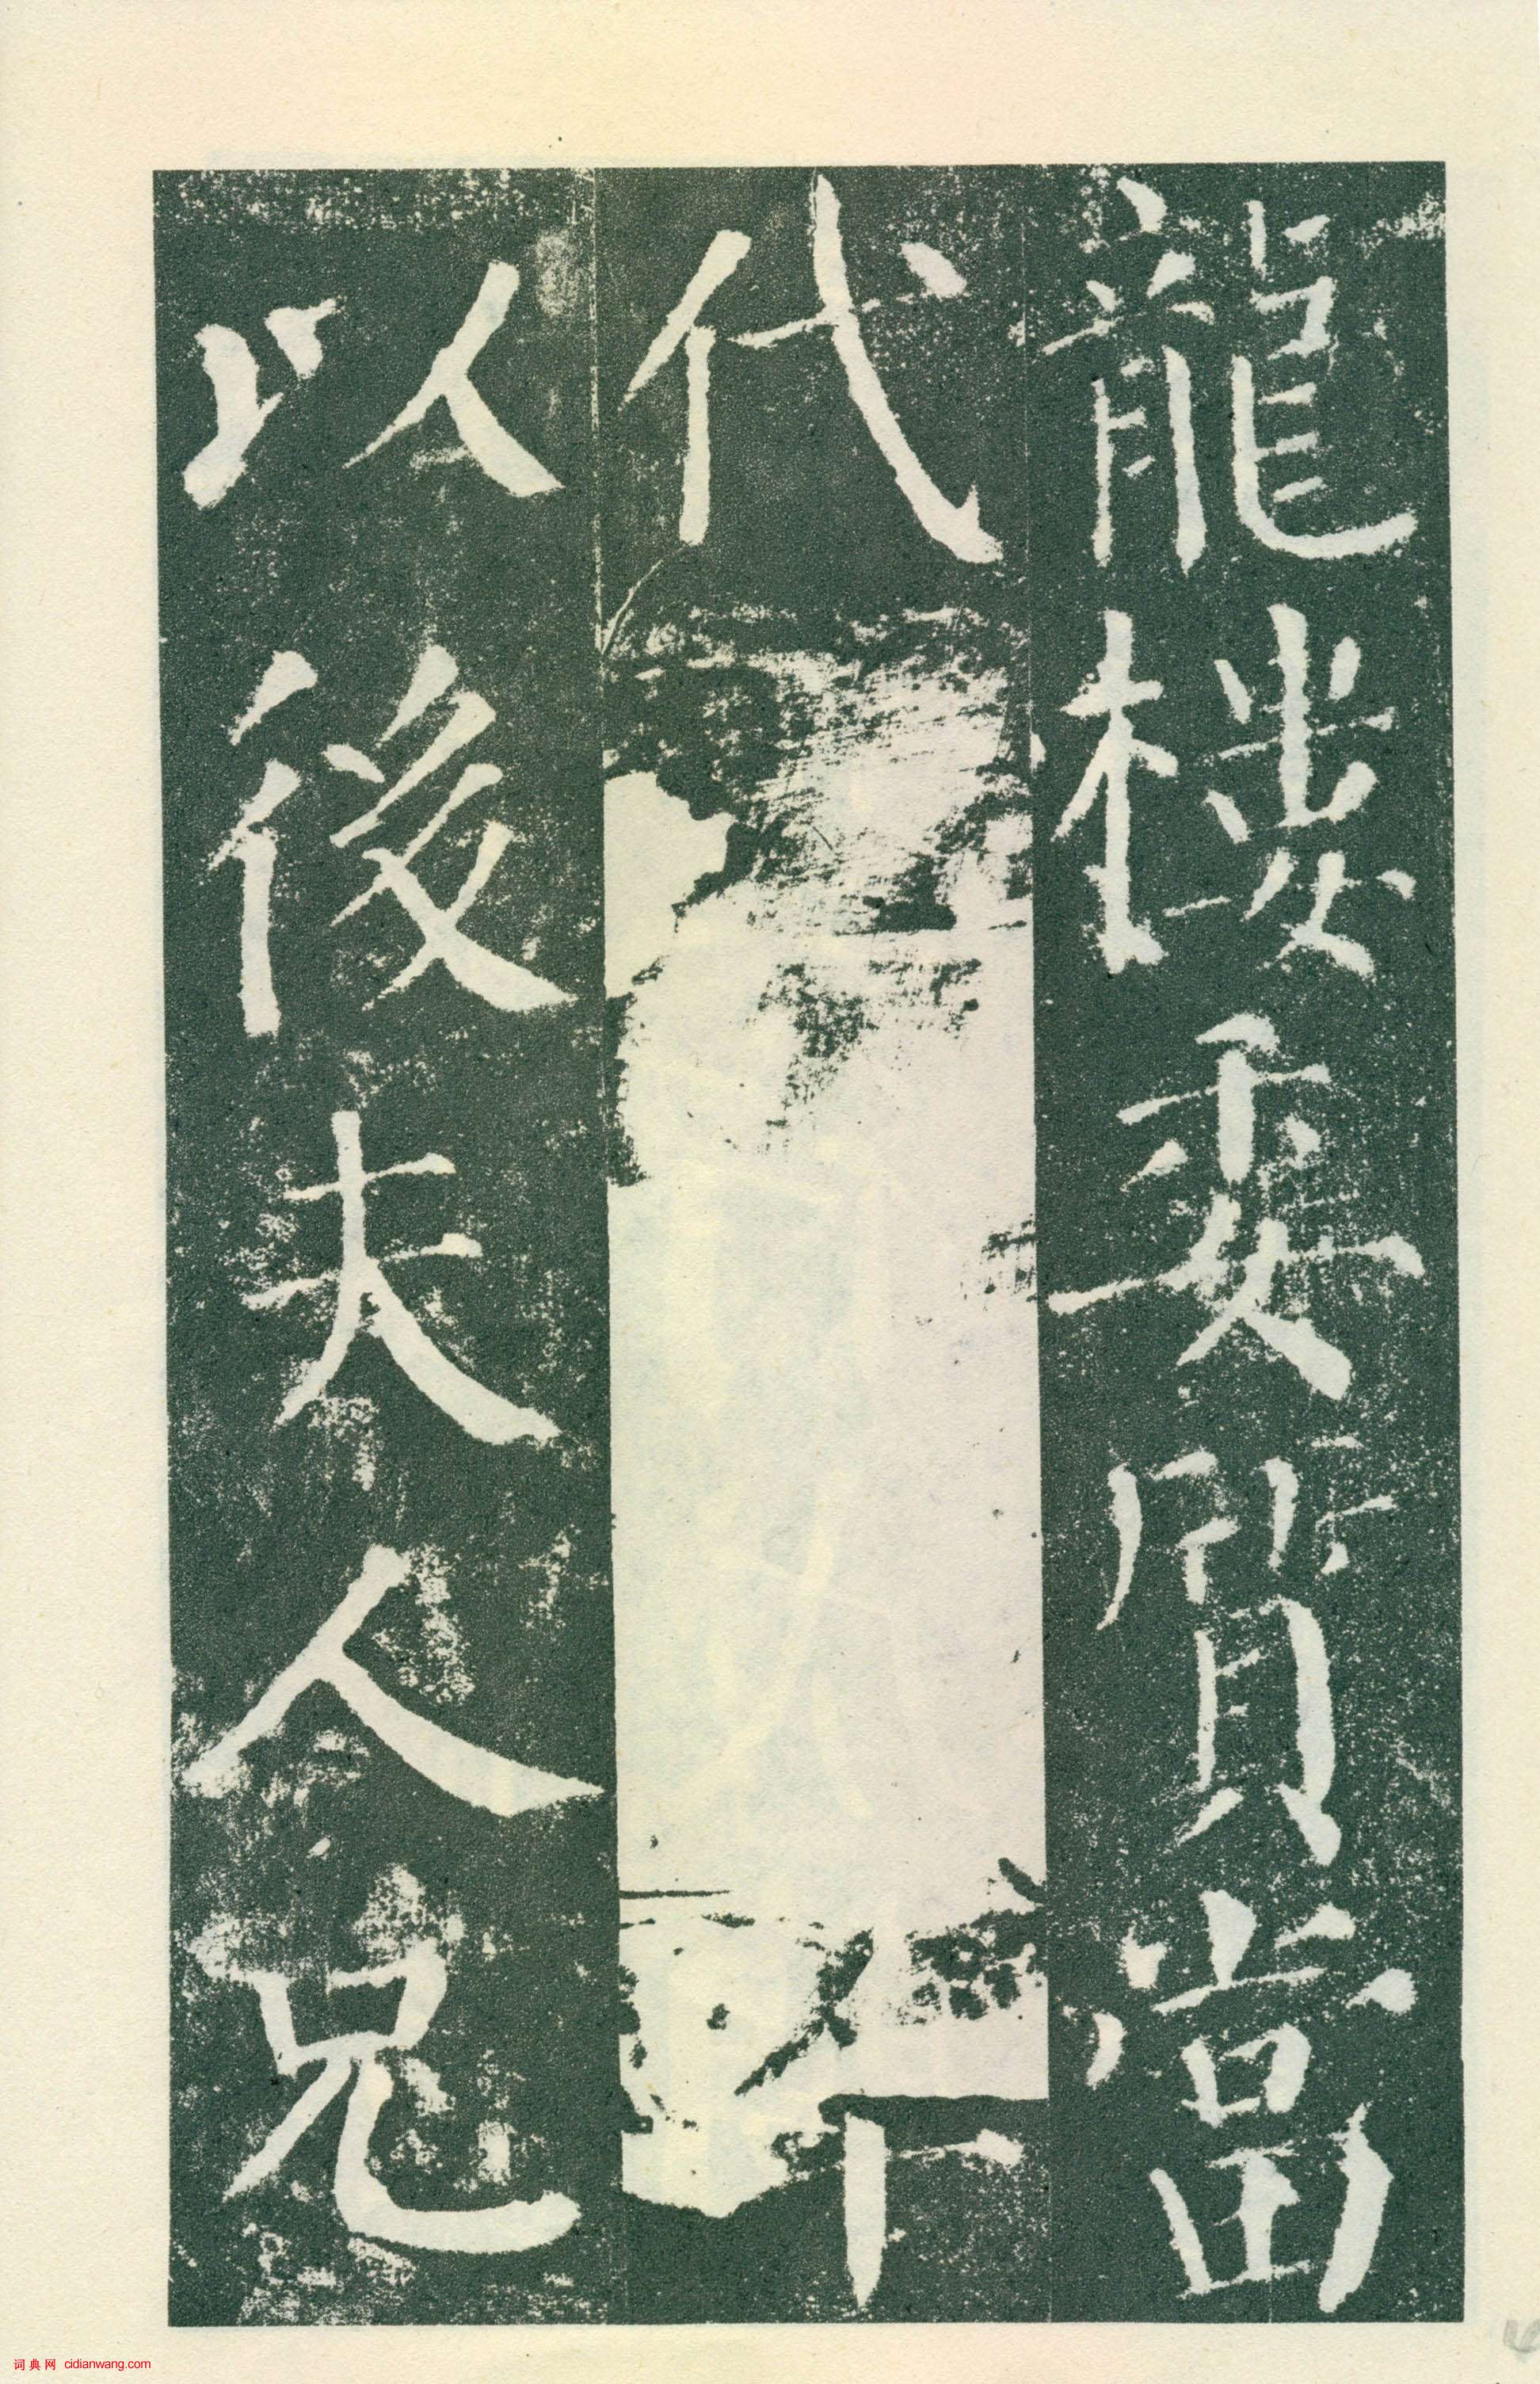 龍樓委質當
代
以後夫人兄
词典网 cidianwang.com